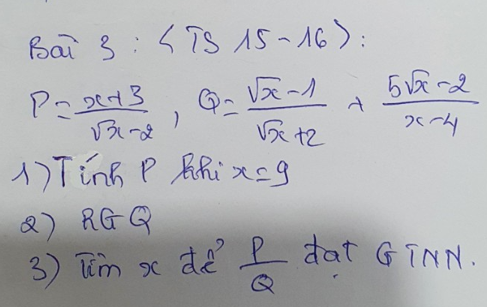 Bài 3 : < TS 15-16 > :
P = (x+3)/(√x-2) , Q = (√x-1)/(√x+2) + (5√x-2)/(x-4)
1) Tính P khi x=9
2) RGQ
3) Tìm x để P/Q đạt GTNN.